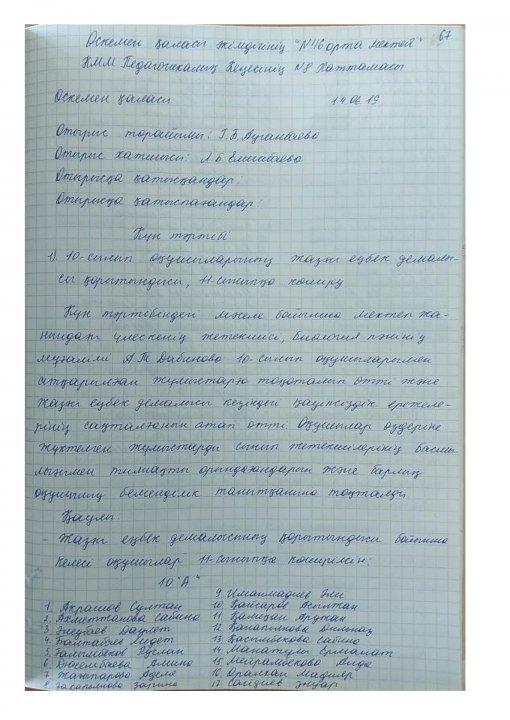 67
Өскемен қаласы әкімдігінің "N46 орта мектебі"
КММ Педагогикалық Кеңесінің N8 Хаттамасы
Өскемен қаласы 14.06.19
Отырыс төрайымы: Г.Б.Ауганбаева
Отырыс хатшысы: Л.Б Елшибаева
Отырысқа қатысқандар:
Отырысқа қатыспағандар:
Күн тәртібі
1) 10-сынып оқушыларының жазғы еңбек демалы-
сы қорытындысы, 11-сыныпқа көшіру
Күн тәртібіндегі мәселе бойынша мектеп жа-
нындағы үлескенің жетекшісі, биология пәнінің
мұғалімі А.Т Дабинова 10-сынып оқушыларымен
атқарылған жұмыстарға тоқталып өтті және
жазғы еңбек демалысы кезіндегі қауіпсіздік ережеле-
рінің сақталғанын атап өтті. Оқушылар өздеріне
жүктелген жұмыстарды сынып жетекшілерінің басшы-
лығымен тиянақты орындағандарын және барлық
оқушының белсенділік танытқанына тоқталды.
Қаулы:
- Жазғы еңбек демалысының қорытындысы бойынша
келесі оқушылар 11-сыныпқа көшірілсін:
10 "А"
1. Акрашов Султан
2. Ахметтанова Сабина
3. Даулет
4.
5. Руслан
6. Дюсембаева Амина
7. Жаппарова Аделя
8. Зарина
9. Иманмадиев Эли
10. Қайсаров Асылжан
11. Қамидан Аружан
12. Қанапинова Дильназ
13. Қасымбекова Сабина
14. Манатулы Ерманат
15. Мейрамбекова Аида
16. Оралхан Мадияр
17. Саидиев Энуар